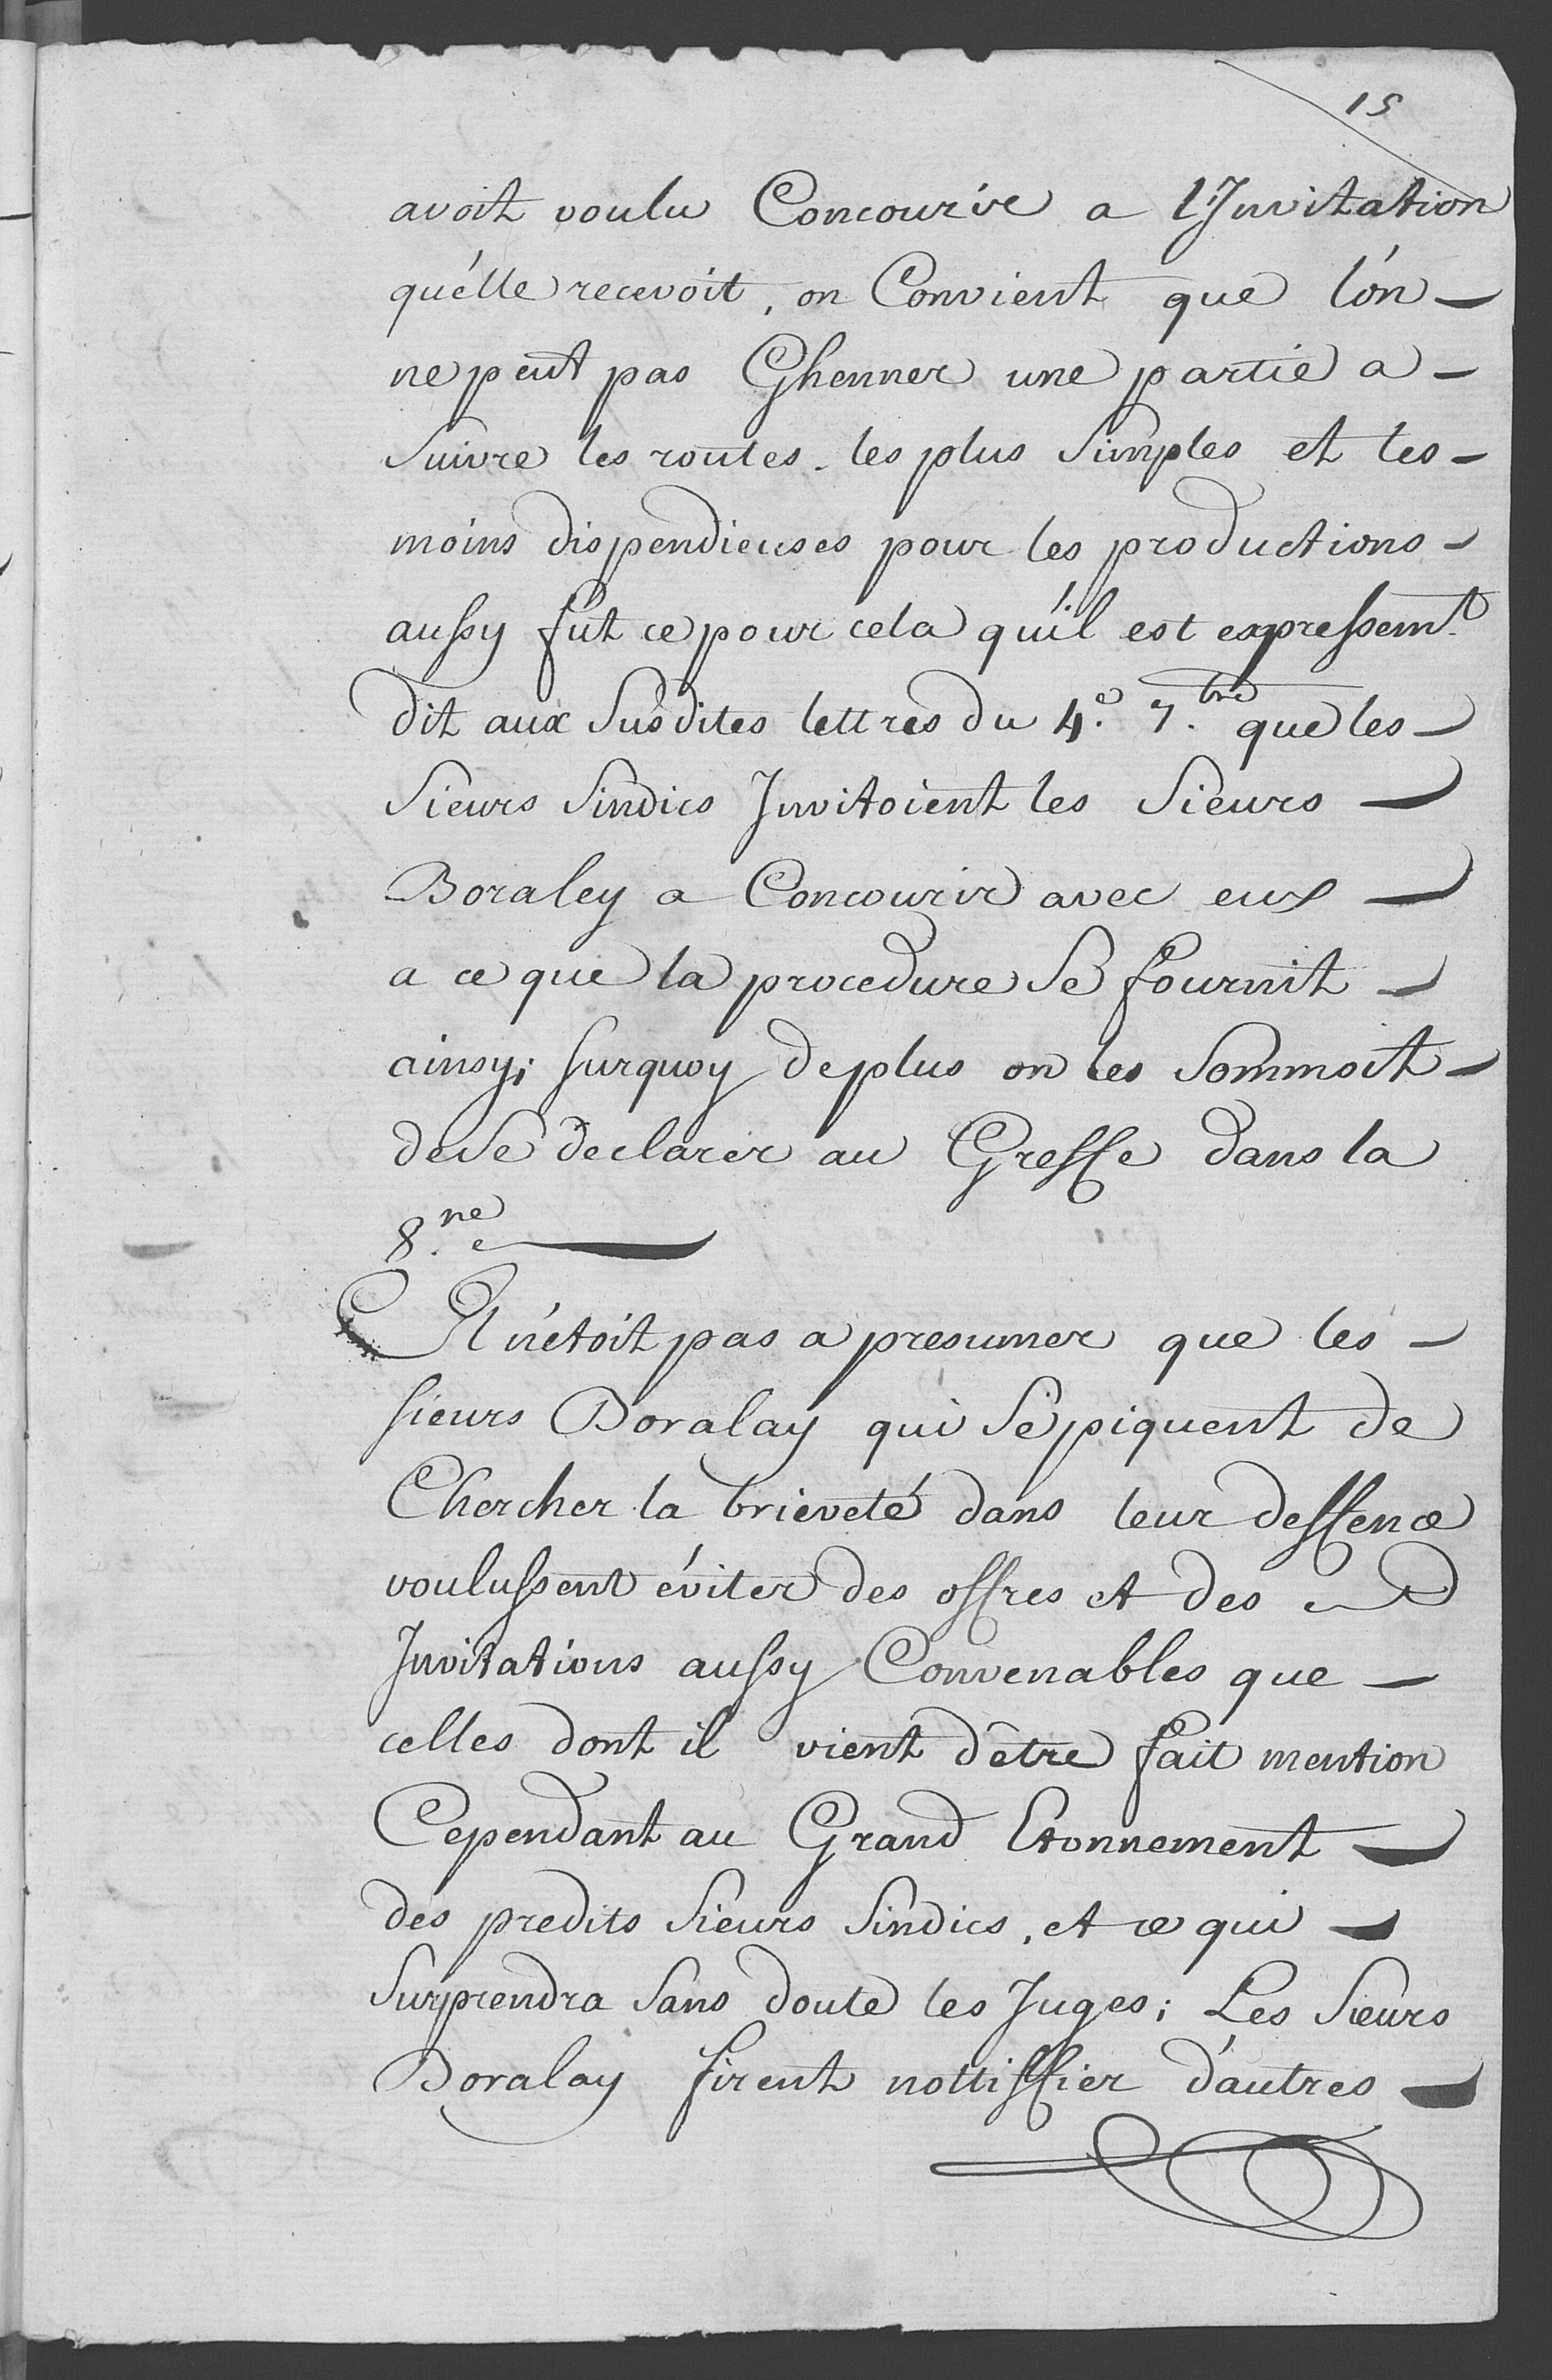 15
avoit voulu Concourir a l'Invitation
qu'elle recevoit, on Convient que l'on
ne peut pas Ghenner une partie a
Suivre les routes les plus Simples et les
moins dispendieuses pour les productions
aussy fut ce pour cela qu'il est expressemt.
dit aux Susdites lettres du 4.e 7.bre que les
Sieurs Sindics Invitoient les Sieurs
Boraley a Concourir avec eux
a ce que la procedure Se fournit
ainsy; surquoy deplus on les Sommoit
de Se declarer au Greffe dans la
8.ne
Il n'etoit pas a presumer que les
sieurs Boralay qui Se piquent de
Chercher la brieveté dans leur deffence
voulussent éviter des offres et des
Invitations aussy Convenables que
celles dont il vient d'etre fait mention
Cependant au Grand Etonnement
des predits Sieurs Sindics, et ce qui
Surprendra Sans doute les Juges; Les Sieurs
Boralay firent nottiffier d'autres